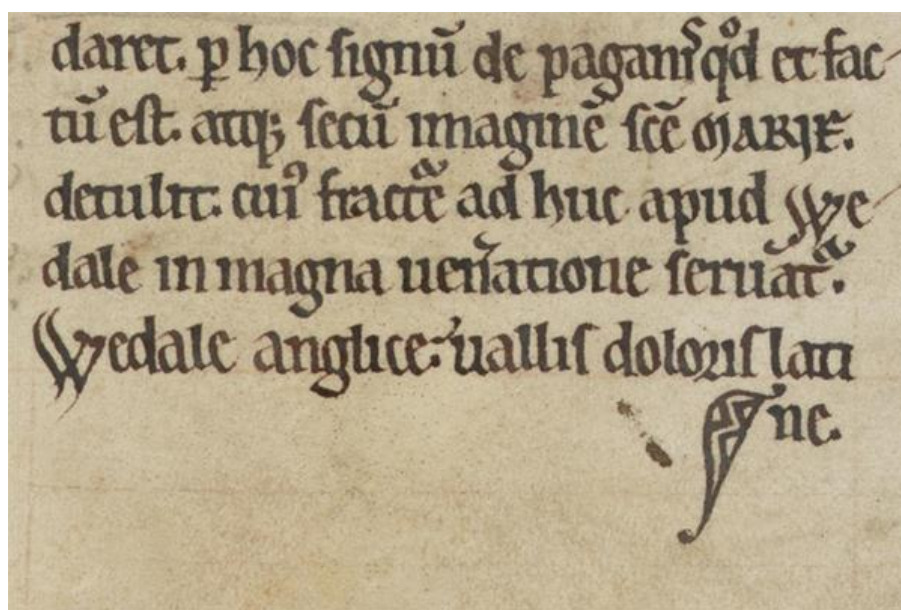 daret. ꝑ hoc signū de paganisͣ qͦd et fac-
tū est. atqꝫ secū imaginē scē MARIE.
detulit. cuiꝰ fractͣē ad huc apud We-
dale in magna uen̄atione seruātᷓ.
Wedale anglice. uallis doloris lati
ne.